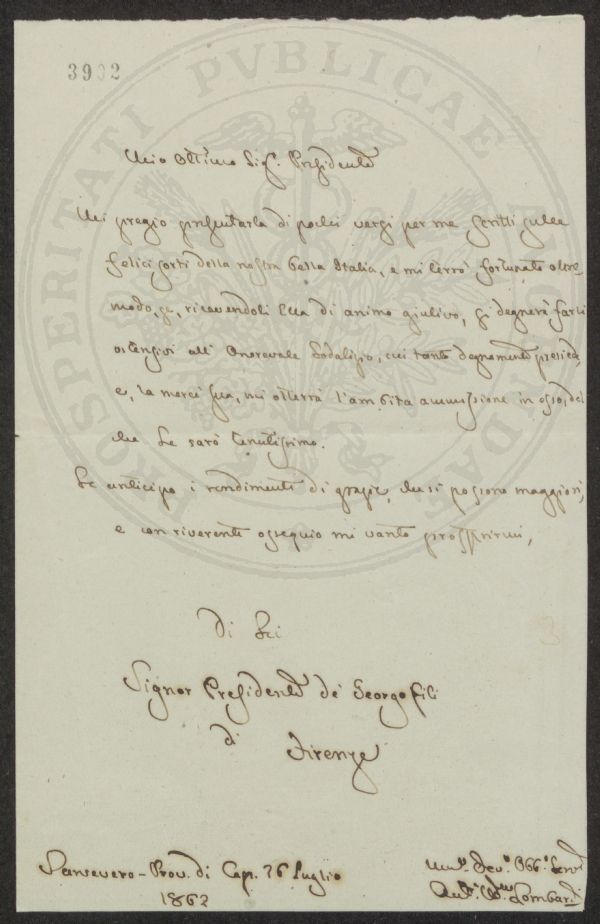 3902
PROSPERITATI PVBLICAE AVGENDAE
Mio Ott.imo Sig.r Presidente
Mi pregio presentarla di pochi versi per me scritti sulle
felici sorti della nostra bella Italia, e mi terrò fortunato oltre
modo, se, ricevendoli Ella di animo giulivo, si degnerà farli
ostensivi all' Onorevole Sodalizio, cui tanto degnamente presiede,
e, la mercé sua, mi otterrà l'ambita ammissione in esso, del
che Le sarò tenutissimo.
Le anticipo i rendimenti di grazie, che si possono maggiori,
e con riverente ossequio mi vanto profferirmi,
di Lei
Signor Presidente de' Georgofili
di
Firenze
Sansevero - Prov. di Cap. 26 Luglio
1862
Um.o Dev.o Obb.o Serv.e
Lombardi